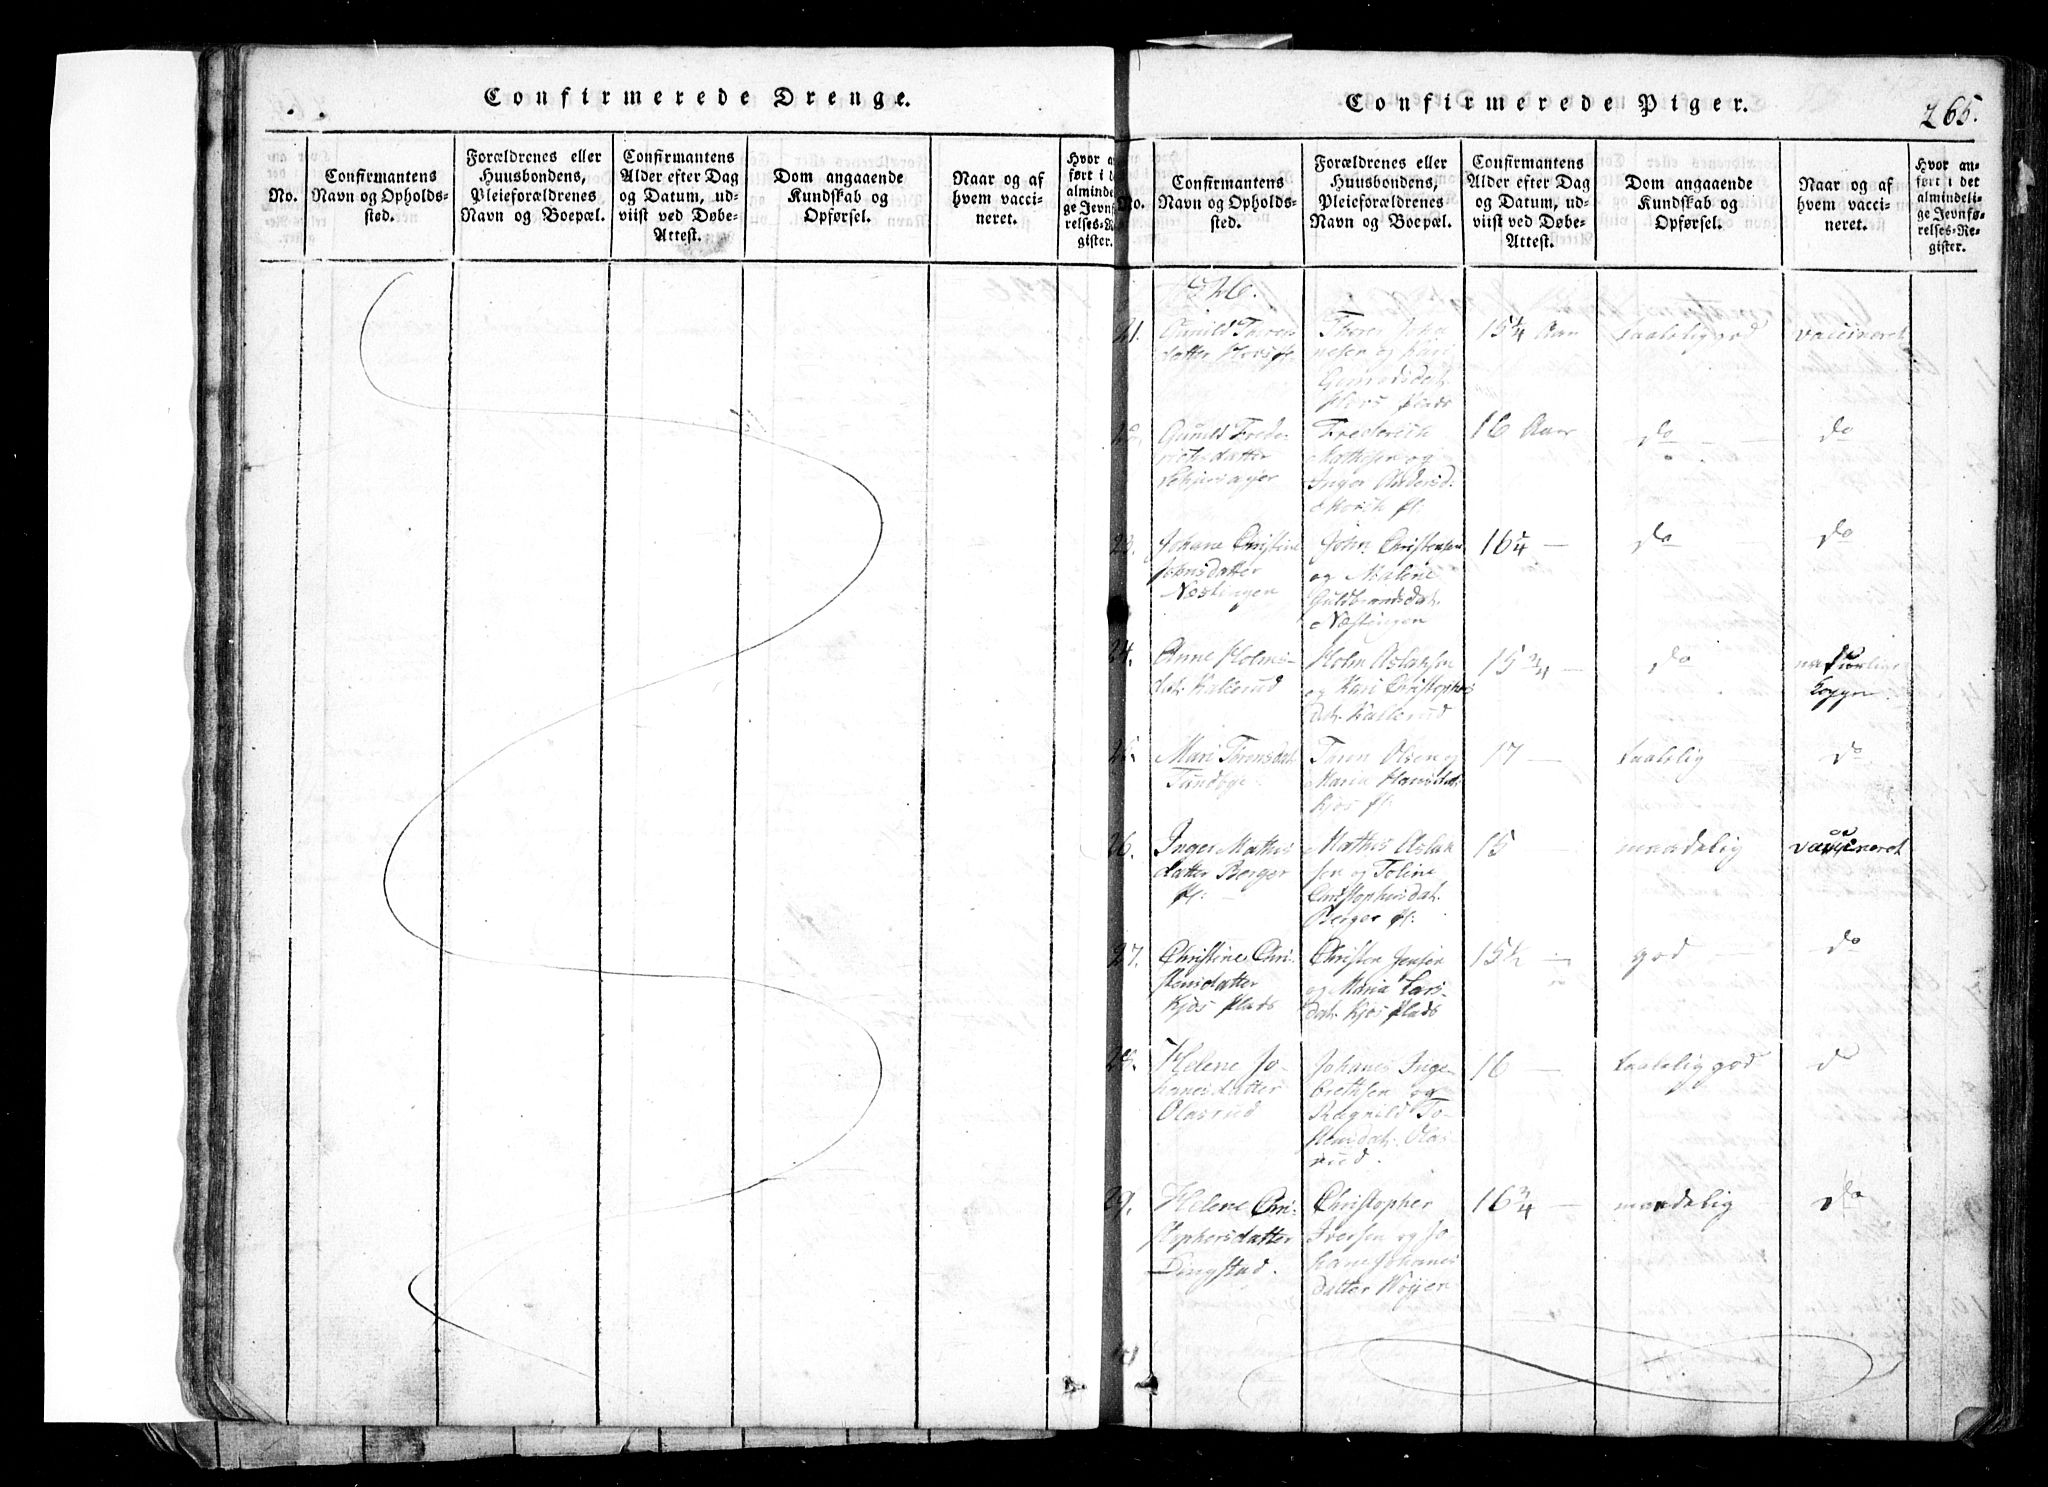 Confirmerede Drenge.
No.
Confirmantens
Navn og Opholds-
sted.
Forældrenes eller
Huusbondens,
Pleieforældrenes
Navn og Boepæl.
Confirmantens
Alder efter Dag
og Datum, ud-
viist ved Døbe-
Attest.
Dom angaaende
Kundskab og
Opførsel.
Naar og af
hvem vacci-
neret.
Hvor a
ført i d
alminde
ge Jevnf
relses-R
gister.
Confirmerede Piger.
265.
No.
Confirmantens
Navn og Opholds-
sted.
Forældrenes eller
Huusbondens,
Pleieforældrenes
Navn og Boepæl.
Confirmantens
Alder efter Dag
og Datum, ud-
viist ved Døbe-
Attest.
Dom angaaende
Kundskab og
Opførsel.
Naar og af
hvem vacci-
neret.
Hvor an-
ført i det
almindeli-
ge Jevnfø-
relses-Re-
gister.
21.
datter
og Kari
15¼ Aar
taalelig god
vaccineret
Gunild Frede-
datter
Frederich
Mathisen og
Inger Anders d.
16 Aar
do
do
Johane Christine
Johnsdatter
Næstingen
John Christensen
og Malene
Guldbrandsdat.
Næstingen
16¼ —
do
do
24.
Anne Holms-
dat. Kallerud
Holm Aslaksen
og Kari Christophers
dat. Kallerud
15¾ —
do
naturlige
Kopper
Mari Torensdat.
Toren Olsen og
Maria Hansdat.
Kjos pl:
17 —
taalelig
do
26.
Inger Mathis
datter Berger
pl:
Mathis Aslak
sen og Toline
Christophersdat.
Berger pl:
15 —
maadelig
vaccineret
27.
Christine Chri-
stensdatter
Kjos plads
Christen Jensen
og Maria Lars-
dat. Kjos plads
15½ —
god
do
28.
Helene Jo-
hanesdatter
Olasrud
Johanes Inge-
brethsen og
Ragnild To-
stensdat. Olas-
rud.
16 —
taalelig god
do
29.
Helene Chri-
stophersdatter
Dingstad.
Christopher
Iversen og Jo
hane Johanes
datter Woyen
16¾ —
maadelig
do